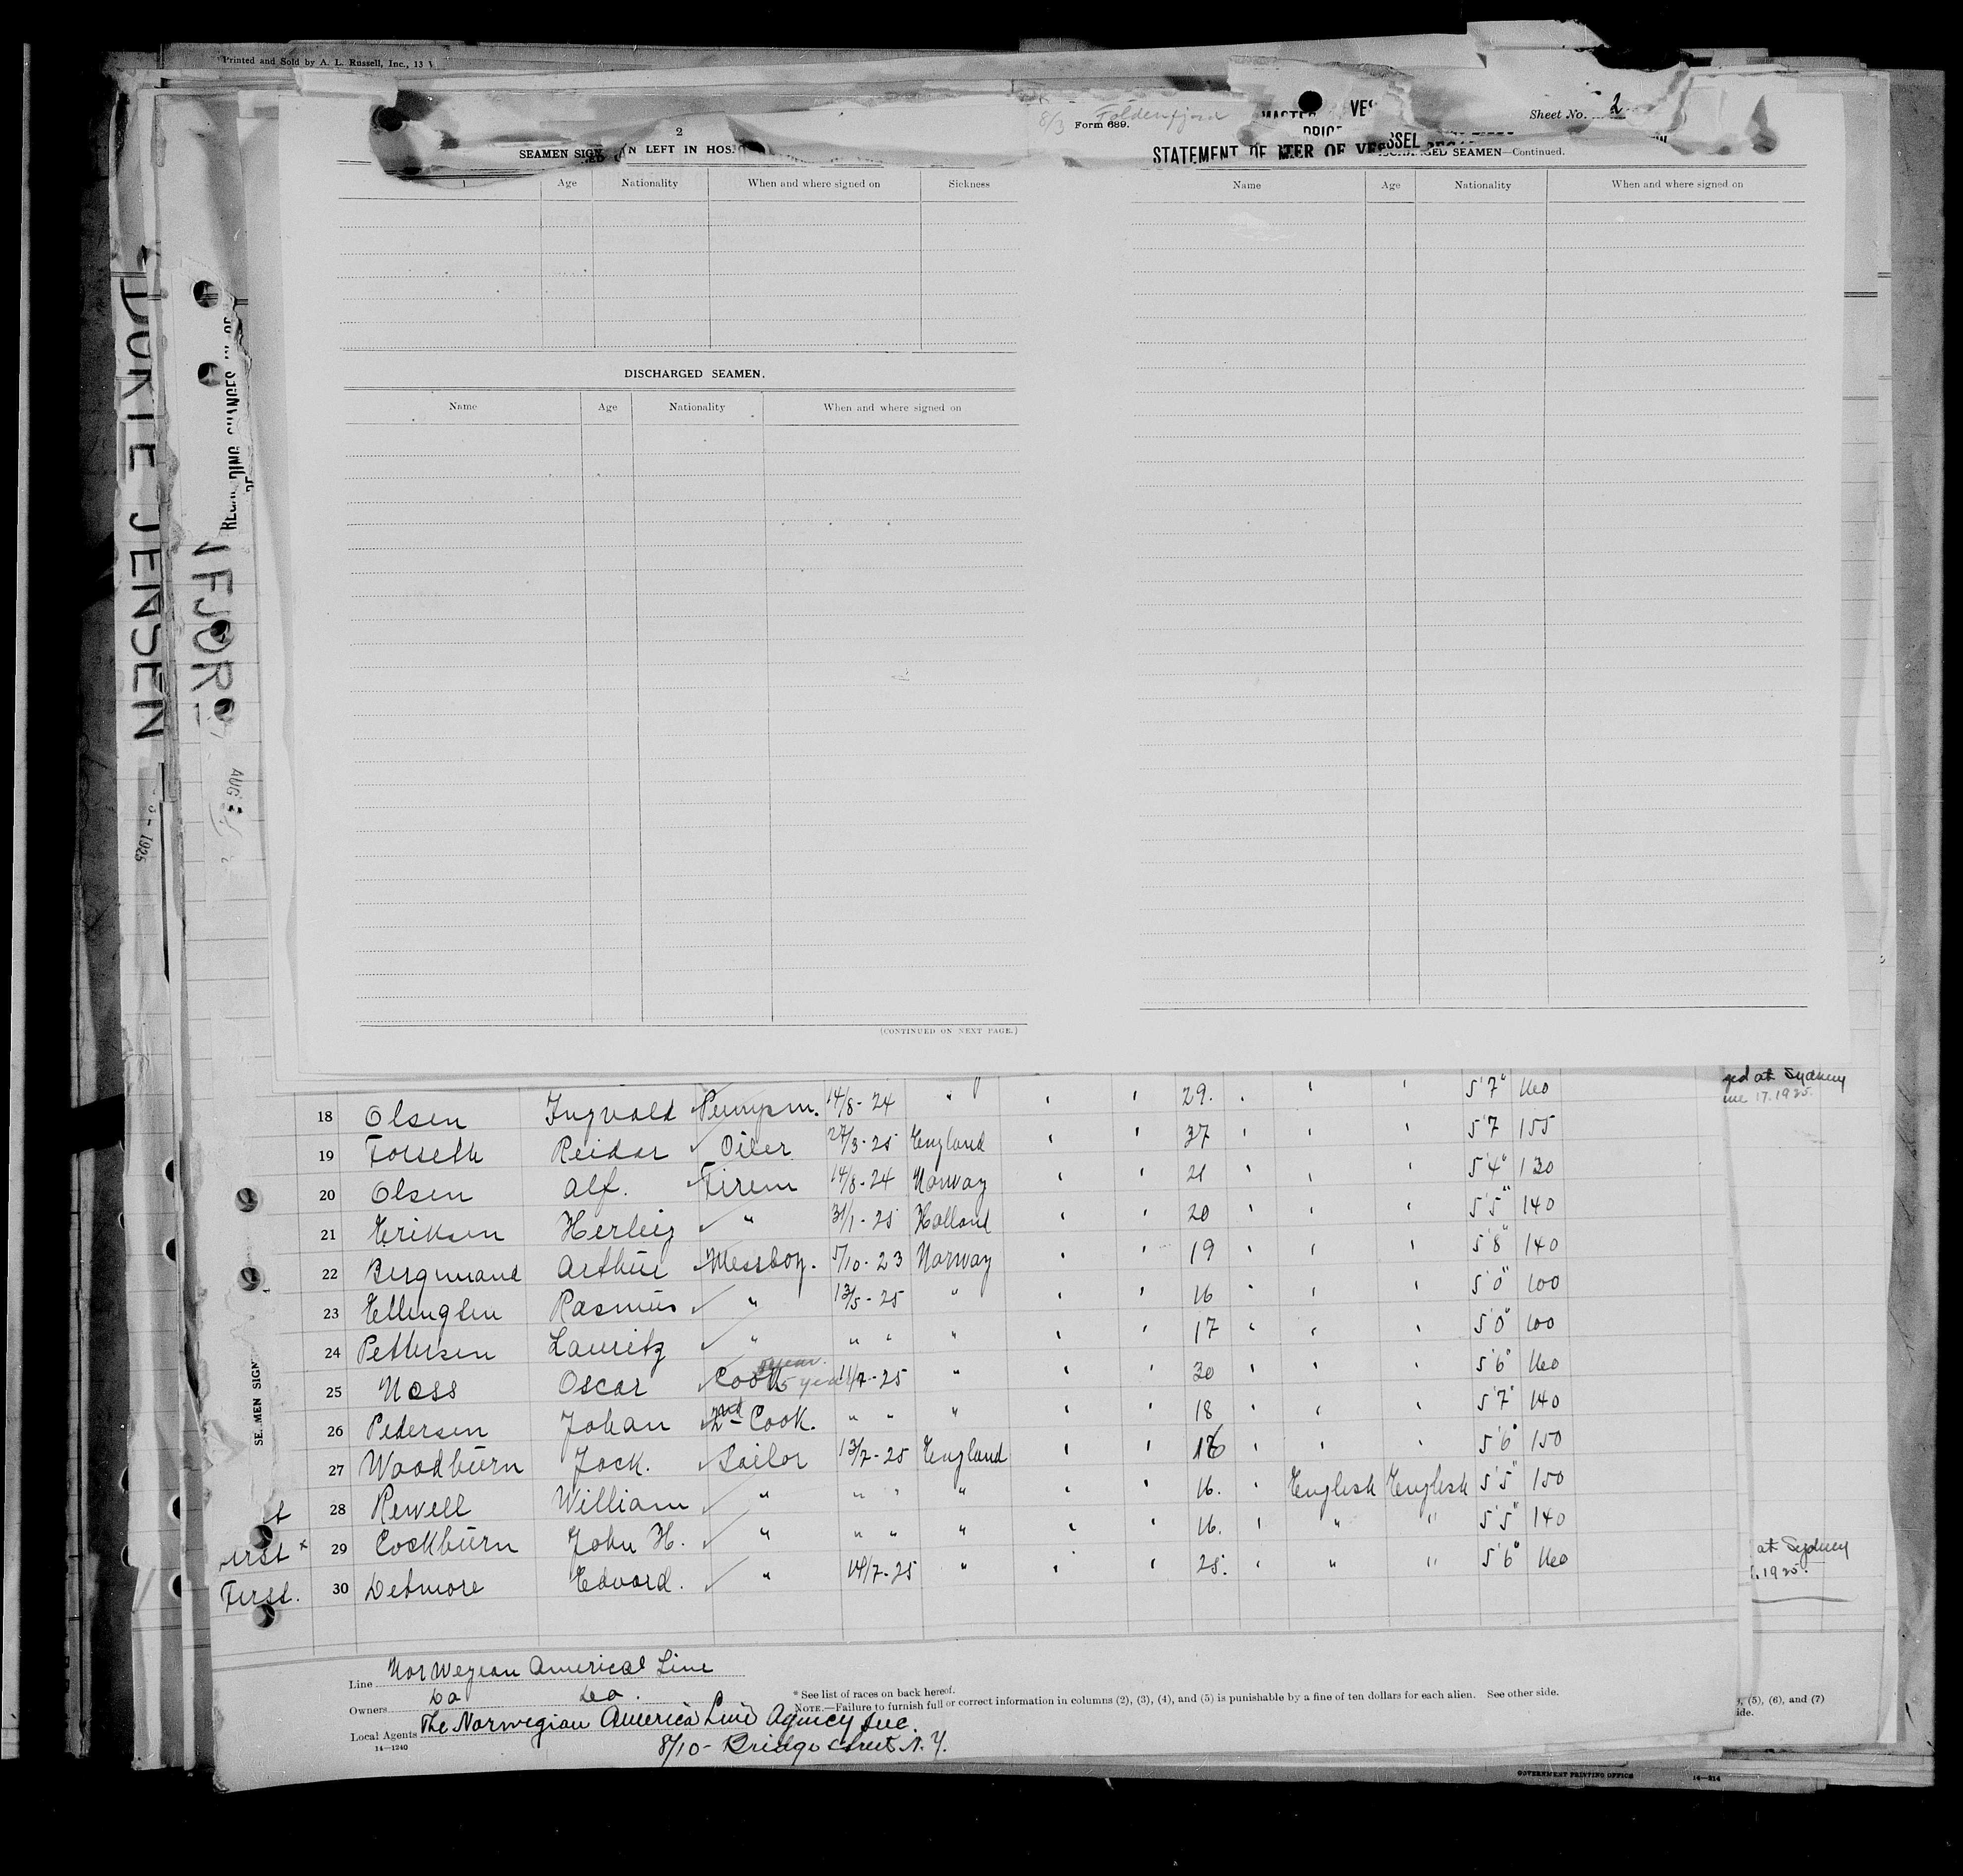 Printed and Sold by A. L. Russell, Inc., 13
2
SEAMEN SIGN LEFT IN HOS
Age Nationality When and where signed on Sickness
DISCHARGED SEAMEN.
Name Age Nationality When and where signed on
(CONTINUED ON NEXT PAGE.)
8/3 Foldenfjord
Form 689.
Sheet No. 2
STATEMENT OF MASTER OF VESSEL
DISCHARGED SEAMEN—Continued.
Name Age Nationality When and where signed on
DORTE JENSEN
8 - 1925
REGARDING CHANGES IN
NFJOR
AUG 3
18 Olsen Ingvald Pumpm. 14/8-24 " ' ' 29. ' ' ' 5'7" 160
19 Forseth Reidar Oiler 27/3-25 England ' ' 37 ' ' ' 5'7 155
20 Olsen Alf. Firem 14/8-24 Norway ' ' 21 ' ' ' 5'4" 130
21 Eriksen Herleig " 31/1-25 Holland ' ' 20 ' ' ' 5'5" 140
22 Bergmand Arthur Messboy. 5/10-23 Norway ' ' 19 ' ' ' 5'8" 140
23 Ellingsen Rasmus " 13/5-25 " ' ' 16 ' ' ' 5'0" 100
24 Pettersen Lauritz " " " " ' ' 17 ' ' ' 5'0" 100
25 Noss Oscar Cook 5 year 11/7-25 " ' ' 30 ' ' ' 5'6" 160
26 Pedersen Johan 2nd Cook. " " " ' ' 18 ' ' ' 5'7" 140
27 Woodburn Jack. Sailor 13/7-25 England ' ' 16 ' ' ' 5'6" 150
28 Rewell William " " " " ' ' 16. ' English English 5'5" 150
First x 29 Cockburn John H. " " " " ' ' 16. ' " " 5'5" 140
First. 30 Detmore Edvard. " 14/7-25 " ' ' 25. ' " " 5'6" 160
at Sydney
17.1925.
at Sydney
1925.
SEAMEN SIGN
Line Norwegean Americal Line
Owners Do Do.
Local Agents The Norwegian America Line Agency Inc.
8/10- Bridge Street N.Y.
14—1240
* See list of races on back hereof.
NOTE.—Failure to furnish full or correct information in columns (2), (3), (4), and (5) is punishable by a fine of ten dollars for each alien. See other side.
(5), (6), and (7)
ide.
GOVERNMENT PRINTING OFFICE 14—314